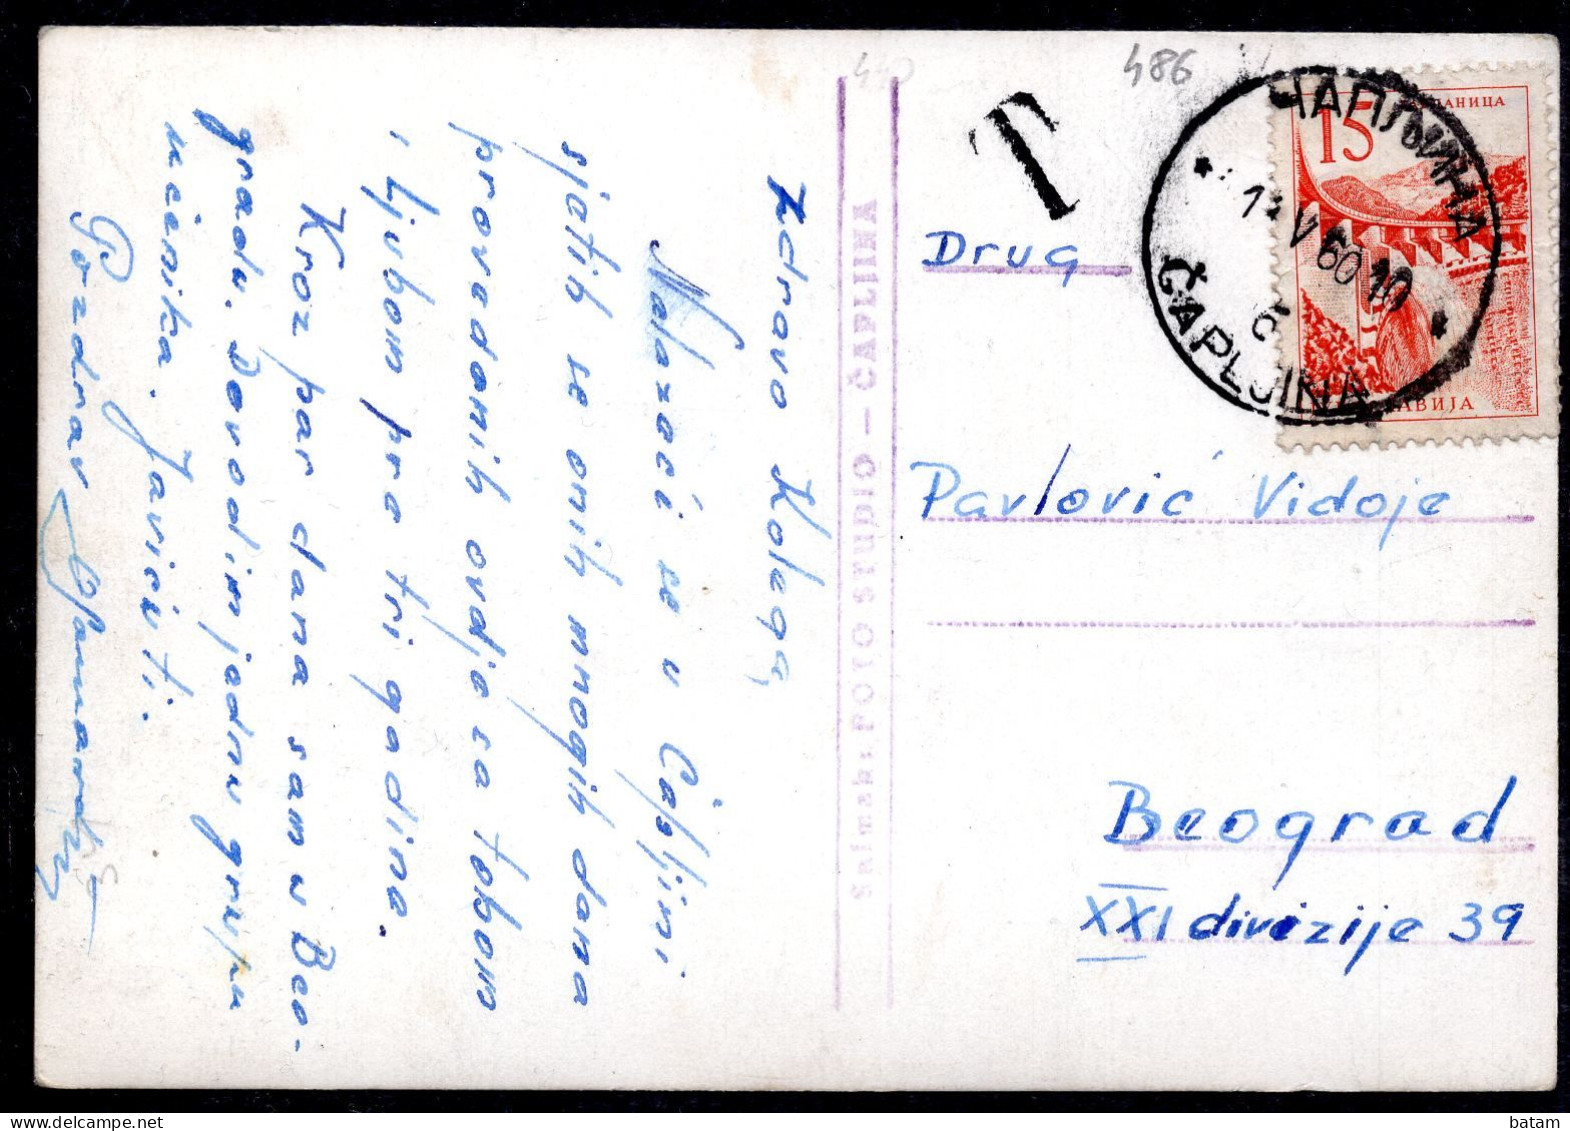 Zdravo Kolega,
Nalazeći se u Čapljini
sjetih se onih mnogih dana
provedenih ovdje sa tobom
i Ljubom pre tri godine.
Kroz par dana sam u Beo-
gradu. Dovodim jednu grupu
učenika. Javiću ti.
Pozdrav
Snimak: FOTO STUDIO — ČAPLJINA
T
486
ЧАПЉИНА
V 60 10
ČAPLJINA
15
АВИЈА
Drug
Pavlović Vidoje
Beograd
XXI divizije 39
batam